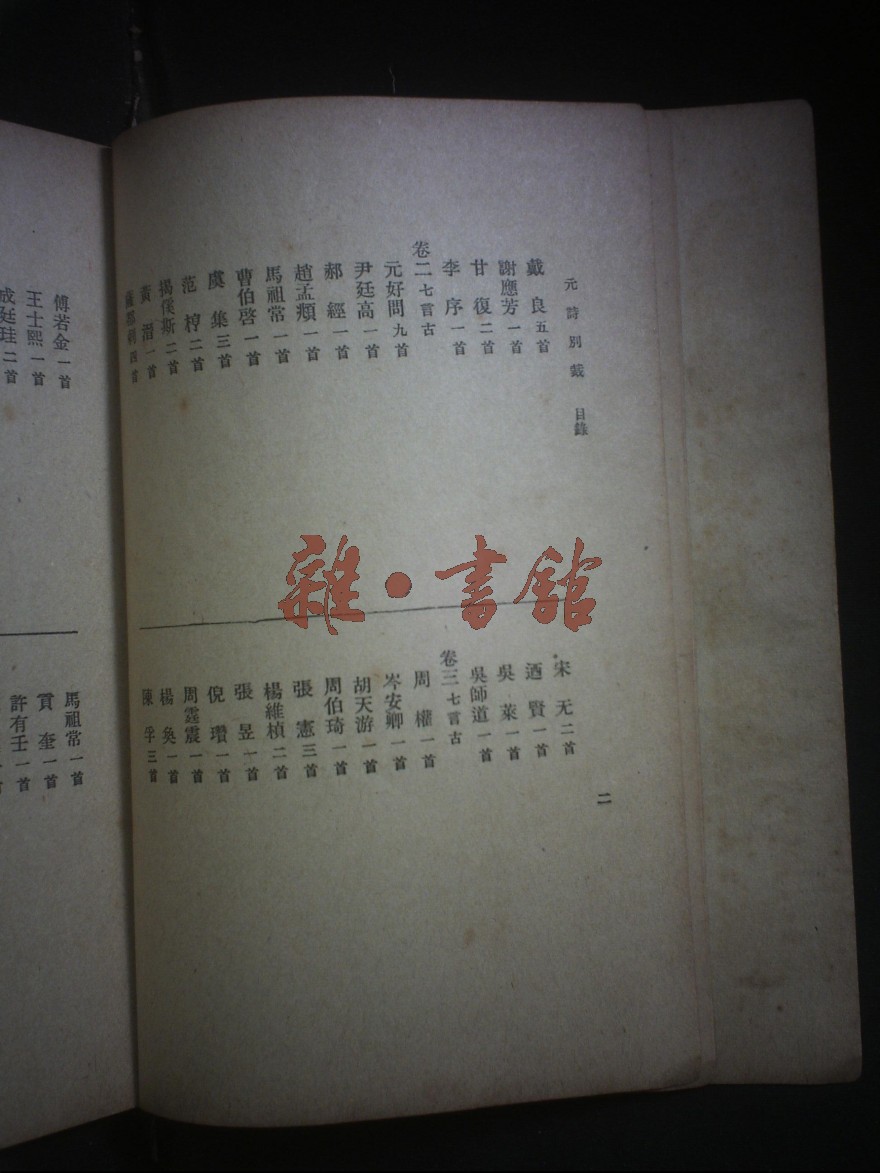 元詩別裁 目錄
二
戴良五首
謝應芳一首
甘復二首
李序一首
卷二七言古
元好問九首
郝經一首
尹廷高一首
趙孟頫一首
馬祖常一首
曹伯啓一首
虞集三首
范梈二首
揭傒斯二首
黃溍一首
薩都剌四首
宋无二首
迺賢一首
吳萊一首
吳師道一首
卷三七言古
周權一首
岑安卿一首
胡天游一首
周伯琦一首
張憲三首
楊維楨二首
張昱一首
倪瓚一首
周霆震一首
楊奐一首
陳孚三首
傅若金一首
王士熙一首
成廷珪二首
馬祖常一首
貢奎一首
許有壬一首
雜·書館